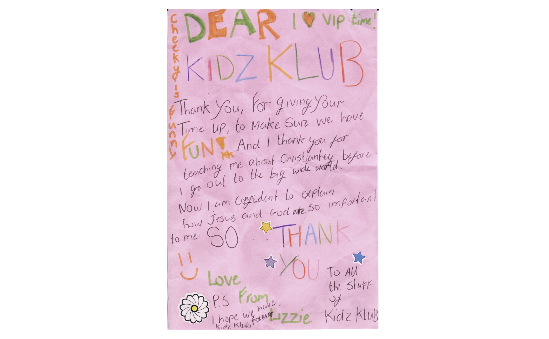 DEAR I ♥ VIP time!
KIDZ KLUB
Cheeky d is funny
Thank You, For giving Your
Time up, to Make Sure we have
FUN! And I thank you for
teaching me about Christiantey, before
I go out to the big wide world.
Now I am confident to explain
how Jesus and God are so important
to me SO THANK
YOU
Love
From
Lizzie
To All
the Stuff
of
Kidz KLUB
P.S
I hope we make
Kidz Klub